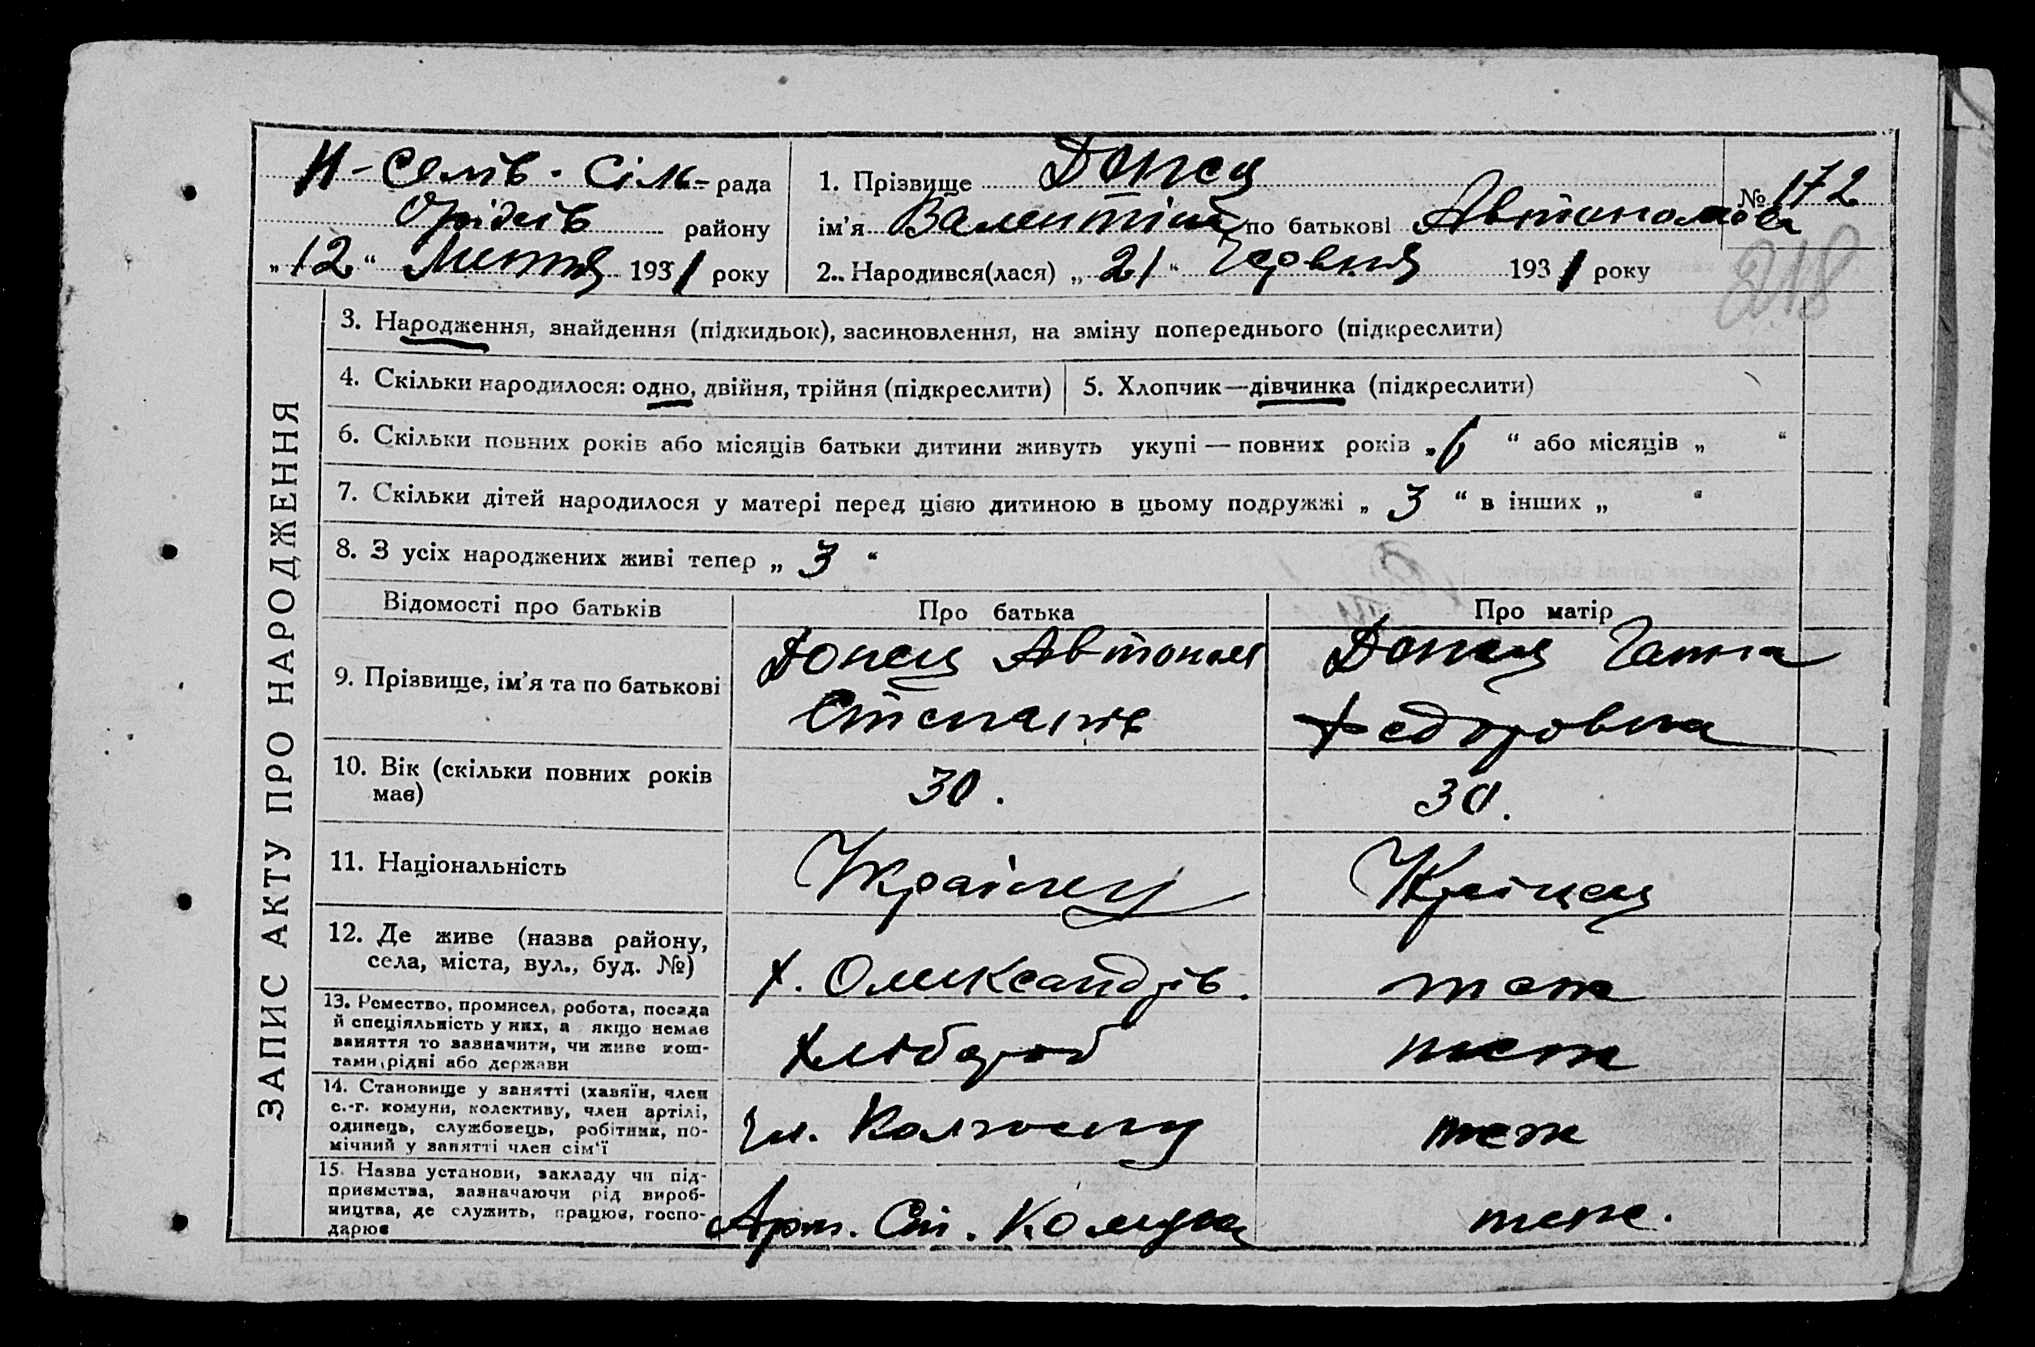 Н-Семів. Сіль-рада
Орідків району
„12“ Липня 1931 року
1. Прізвище Донец
ім’я Валентіна по батькові Автономова
2. Народився(лася) „21“ Червня 1931 року
№ 172
218
ЗАПИС АКТУ ПРО НАРОДЖЕННЯ
3. Народження, знайдення (підкидьок), засиновлення, на зміну попереднього (підкреслити)
4. Скільки народилося: одно, двійня, трійня (підкреслити)
5. Хлопчик—дівчинка (підкреслити)
6. Скільки повних років або місяців батьки дитини живуть укупі — повних років „6“ або місяців „ “
7. Скільки дітей народилося у матері перед цією дитиною в цьому подружжі „3“ в інших „ “
8. З усіх народжених живі тепер „3“
Відомості про батьків
Про батька
Про матір
9. Прізвище, ім’я та по батькові
Донец Автоном
Степанів
Донец Ганна
Федоровна
10. Вік (скільки повних років
має)
30.
30.
11. Національність
Українец
Україцец
12. Де живе (назва району,
села, міста, вул., буд. №)
х. Олександрів.
теж
13. Ремество, промисел, робота, посада
й спеціяльність у них, а якщо немає
заняття то зазначити, чи живе кош-
тами рідні або держави
Хлібороб
теж
14. Становище у занятті (хазяїн, член
с.-г. комуни, колективу, член артілі,
одинець, службовець, робітник, по-
мічний у занятті член сім’ї
чл. Колгоспу
теж
15. Назва установи, закладу чи під-
приємства, зазначаючи рід вироб-
ництва, де служить, працює, госпо-
дарює
Арт. Сіл. Комуна
теж.